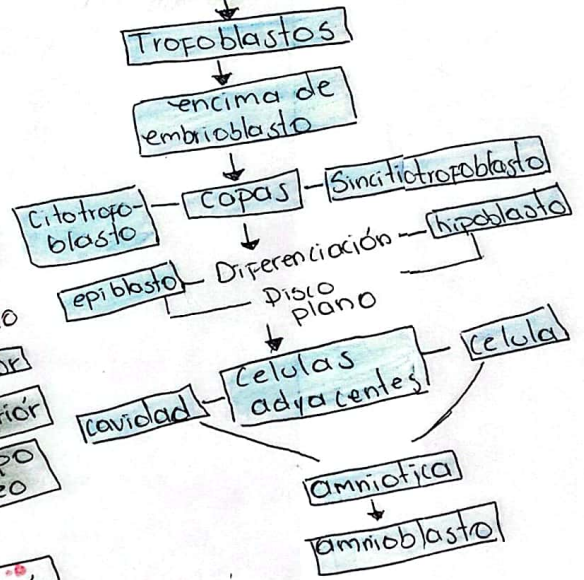 Trofoblastos
encima de
embrioblasto
Citotrofo-
blasto
copas
Sincitiotrofoblasto
epiblasto
Diferenciación
hipoblasto
Disco
plano
celulas
adyacentes
celula
cavidad
amniotica
amnioblasto